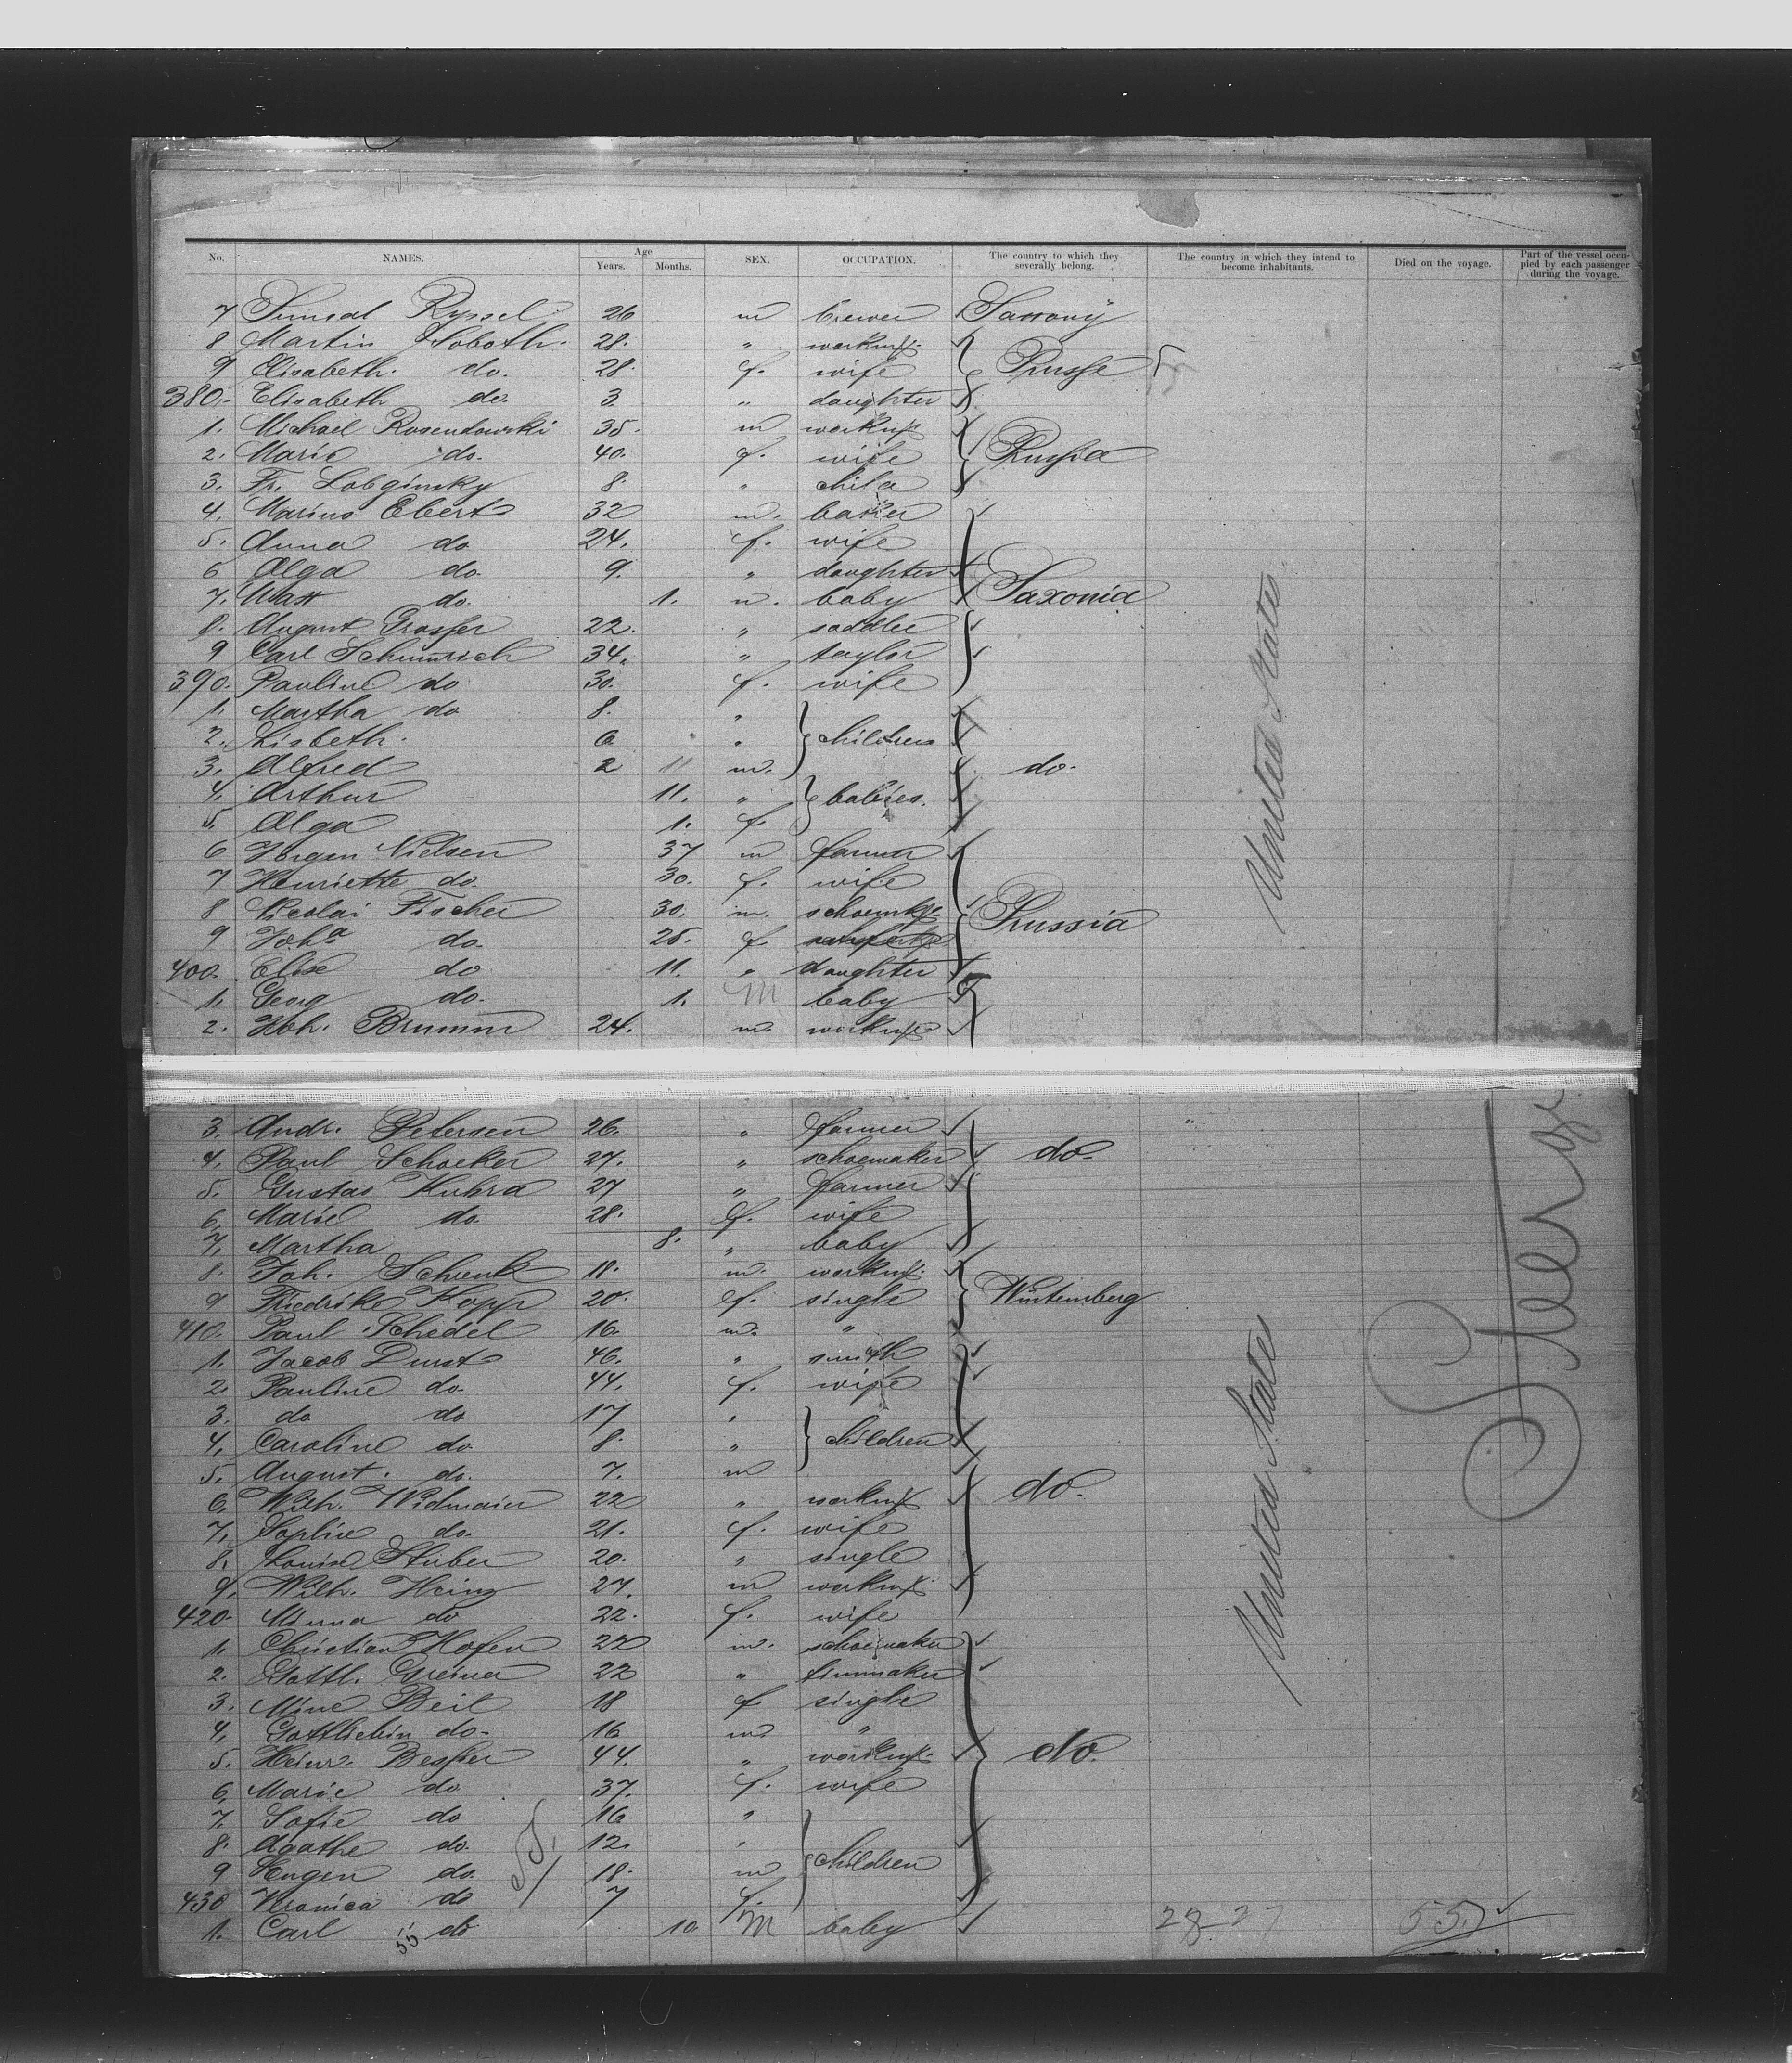 No. NAMES. Age Years. Months. SEX. OCCUPATION. The country to which they severally belong. The country in which they intend to become inhabitants. Died on the voyage. Part of the vessel occupied by each passenger during the voyage.
7 Ryssel 26 m brewer
8 Martin Soboth. 28. " workmn.
9 Elisabeth. do. 28. f. wife
380. Elisabeth do. 3 " daughter
1. Michael Rosendowski 35. m workmn
2. Marie do. 40. f. wife Russia
3. Fr. Lobginsky 8. " child
4. Marius Ebert 32 m. baker
5. Anna do 24. f. wife
6 Olga do. 9. " daughter
7. do. 1. m. baby Saxonia
8. August Grosser 22. " saddler
9 Carl Schumrich 34. " taylor
390. Pauline do 30. f. wife
1. Martha do 8. "
2. Lisbeth. 6 " children
3. Alfred 2 11 m. do.
4. Arthur 11. " babies.
5. Olga 1. f
6 Jörgen Nielsen 37 m farmer
7 Henriette do. 30. f. wife
8 Nicolai Fischer 30. m. schoemkr.
9 Joha do. 25. f.
400. Elise do 11. " daughter
1. Georg do. 1. M baby
2. Joh. Brumm 24. m. workmn
Prussia
United States
3. Andr. Petersen 26. " farmer "
4. Paul Schocker 27. " schoemaker do.
5. Gustav Kuhra 27 " farmer
6. Marie do. 28. f. wife
7. Martha 8. " baby
8. Joh. Schenk 18. m. workmn.
9 Friedrike Kopp 20. f. single Würtemberg
410. Paul Schedel 16. m. "
1. Jacob Durst 46. " smith
2. Pauline do. 44. f. wife
3. do do 17 "
4. Caroline do. 8. " children
5. August. do. 7. m
6. Wilh. Widmaier 22 " workmn do.
7. Sophie do. 21. f. wife
8. Louise Stuber 20. " single
9. Wilh. Heinz 27. m workmn.
420. Minna do 22. f. wife
1. Christian Hofer 22 m. schoemaker
2. Gottl. Greiner 22
3. Mine Beil 18 f single
4. Gottliebin do. 16 m "
5. Heinr. Besser 44. " workmn. do.
6. Marie do 37. f. wife
7. Sofie do 16 "
8. Agathe do. 12. "
9 Eugen do. 18. m children
430 Veronica do 7 f.
1. Carl do 10 M baby
55
28 27
55
United States
Steerage